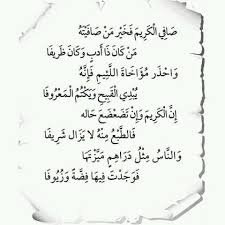 صَافِي الْكَرِيمَ فَخَيْرُ مَنْ صَافَيْتَهُ
مَنْ كَانَ ذَا أَدَبٍ وَكَانَ ظَرِيفَا
وَاحْذَرْ مُؤَاخَاةَ اللَّئِيمِ فَإِنَّهُ
يُبْدِي الْقَبِيحَ وَيَكْتُمُ الْمَعْرُوفَا
إِنَّ الْكَرِيمَ وَإِنْ تَضَعْضَعَ حَالُه
فَالطَّبْعُ مِنْهُ لَا يَزَالُ شَرِيفَا
وَالنَّاسُ مِثْلُ دَرَاهِمٍ مَيَّزْتَهَا
فَوَجَدْتَ فِيهَا فِضَّةً وَزُيُوفَا